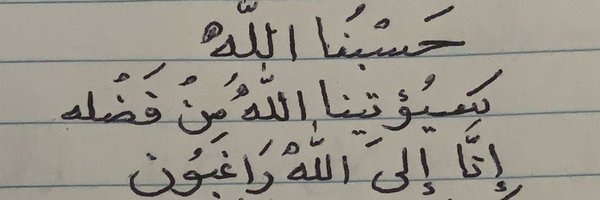 حَسْبُنَا اللّٰهُ
سَيُؤتِينا اللّٰهُ مِنْ فَضْلِه
إِنَّا إِلىَ اللّٰهْ رَاغِبَُون